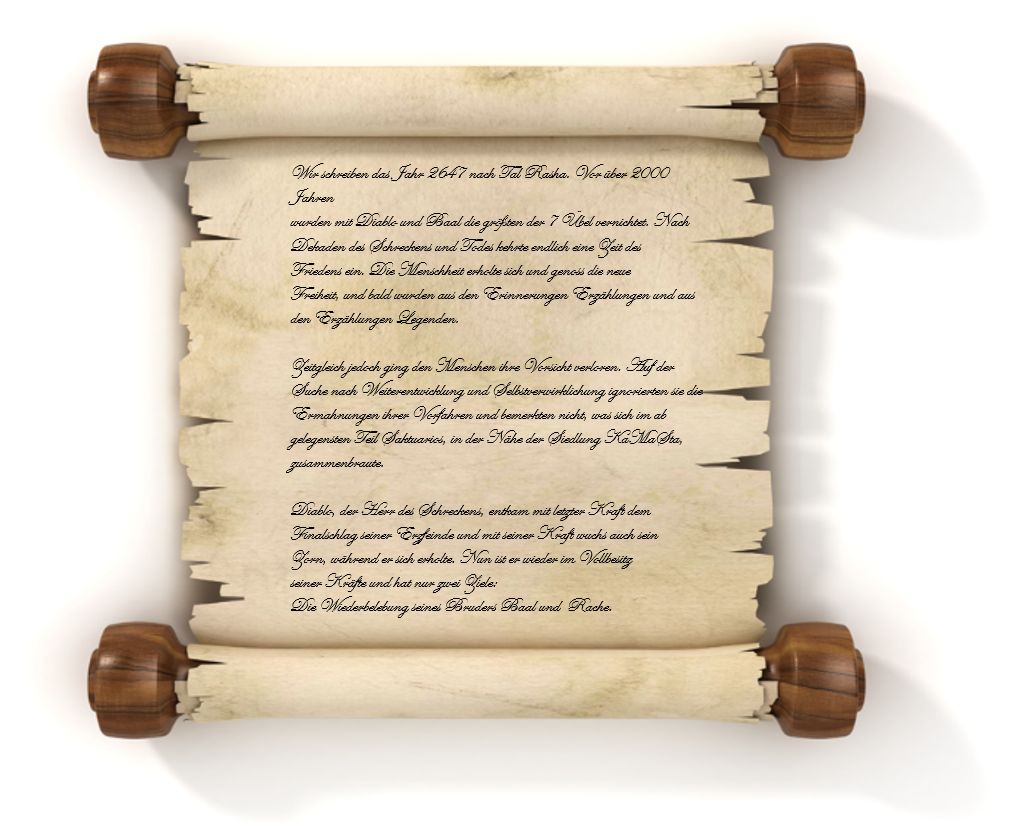 Wir schreiben das Jahr 2647 nach Tal Rasha. Vor über 2000
Jahren
wurden mit Diablo und Baal die größten der 7 Übel vernichtet. Nach
Dekaden des Schreckens und Todes kehrte endlich eine Zeit des
Friedens ein. Die Menschheit erholte sich und genoss die neue
Freiheit, und bald wurden aus den Erinnerungen Erzählungen und aus
den Erzählungen Legenden.
Zeitgleich jedoch ging den Menschen ihre Vorsicht verloren. Auf der
Suche nach Weiterentwicklung und Selbstverwirklichung ignorierten sie die
Ermahnungen ihrer Vorfahren und bemerkten nicht, was sich im ab
gelegensten Teil Saktuarios, in der Nähe der Siedlung KaMaSta,
zusammenbraute.
Diablo, der Herr des Schreckens, entkam mit letzter Kraft dem
Finalschlag seiner Erzfeinde und mit seiner Kraft wuchs auch sein
Zorn, während er sich erholte. Nun ist er wieder im Vollbesitz
seiner Kräfte und hat nur zwei Ziele:
Die Wiederbelebung seines Bruders Baal und Rache.